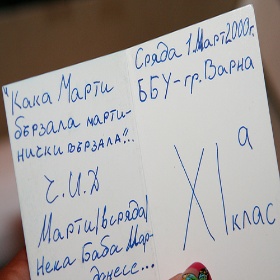 "Кака Марти
бързала марти-
нички вързала"...
Ч.И.Д
Марти/всряда/
Нека Баба Мар-
донесе...
Сряда 1.Март2000г.
ББУ-гр.Варна
XIа
клас